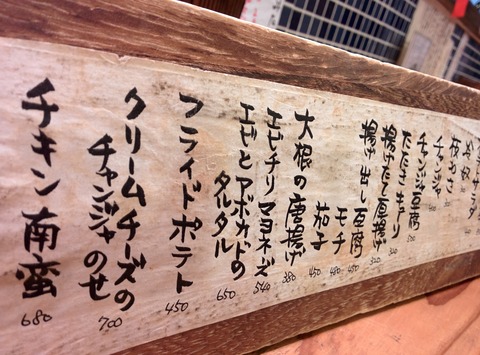 サラダ
枝付
板わさ
チャンジャ
チャンジャ豆腐
たたきキュウリ
揚げたて厚揚げ
揚げ出し豆腐 450
モチ 480
茄子 450
大根の唐揚げ 380
エビチリマヨネーズ 540
エビとアボカドの
タルタル 650
フライドポテト 450
クリームチーズの
チャンジャのせ 700
チキン南蛮 680